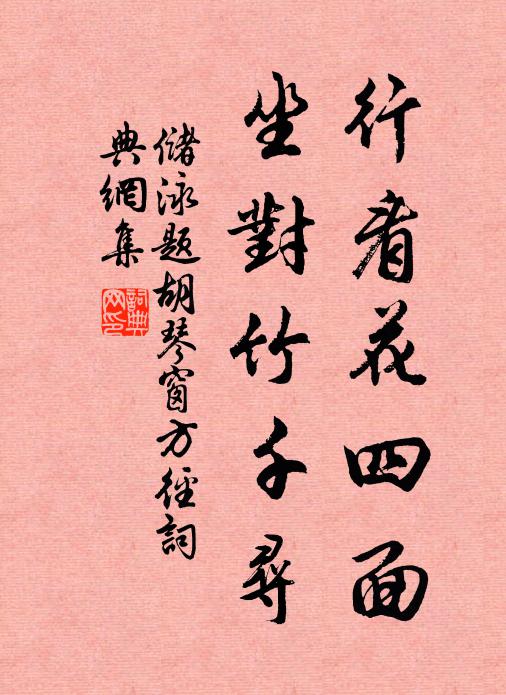 行看花四面
坐對竹千尋
儲泳題胡琴窗方徑詞
典網集
詞典
网印